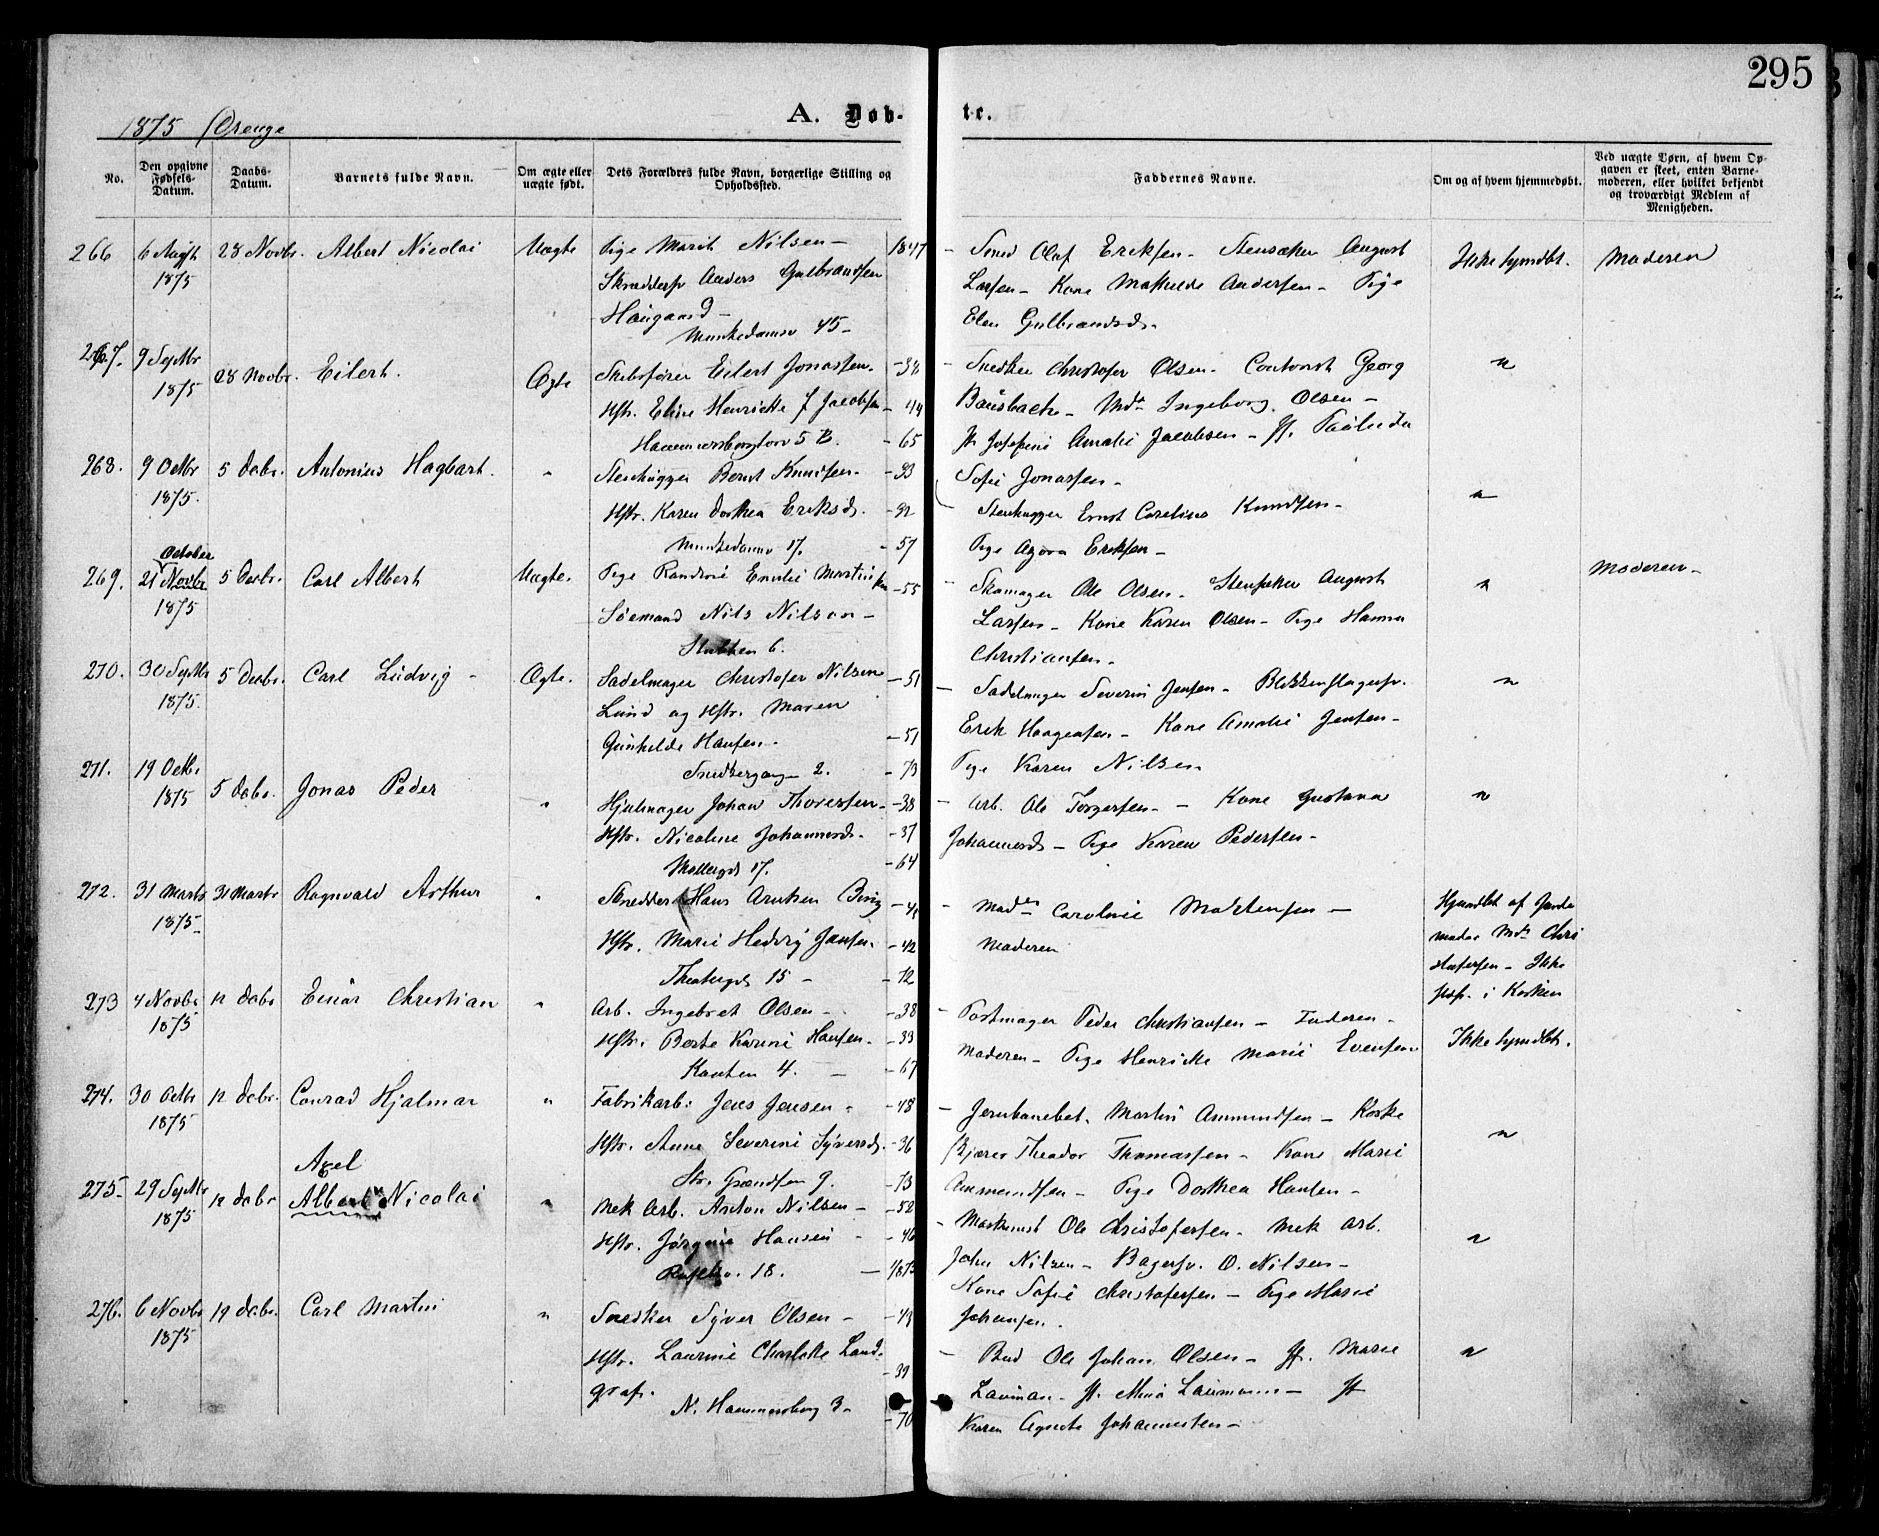 295
1875 Drenge
A. Døb-
te.
No.
Den opgivne Fødsels-Datum.
Daabs-Datum.
Barnets fulde Navn.
Om ægte eller uægte født.
Dets Forældres fulde Navn, borgerlige Stilling og Opholdssted.
Faddernes Navne.
Om og af hvem hjemmedøbt.
Ved uægte Børn, af hvem Opgaven er skeet, enten Barnemoderen, eller hvilket bekjendt og troværdigt Medlem af Menigheden.
266 6 Augst 28 Novbr. Albert Nicolai Uægte Pige Marit Nilsen - 1847 - Smed Olaf Eriksen - August Ikke hjmdbt. Moderen
1875 Skræddersv Anders Gulbrandsen Larsen - Kone Mathilde Andersen - Pige
Haugaard - Elen Gulbrandsd.
Munkedamsv 45 -
267. 9 Septbr 28 Novbr. Eilert. Ægte Skibsfører Eilert Jonassen. - 38 - Snedker Christofer Olsen - Contorist Georg "
1875 Hstr. Eline Henriette J Jacobsen - 44 Bausbach - Md. Ingeborg Olsen -
Hammersborgtorv 5 B. - 65 Jf. Josefine Amalie Jacobsen - Jf.
268. 9 Octbr 5 Decbr. Antonius Hagbart. " Stenhugger Bernt Knudsen - - 33 Sofie Jonassen -
1875. Hstr. Karen Dorthea Eriksd. - 32 Stenhugger Ernst Carelius Knudsen - "
Munkedamsv 17. - 57 Pige Agora Eriksen -
October
269. 21 Novbr 5 Decbr. Carl Albert Uægte. Pige Randine Emilie Martinsen - 55 - Skomager Ole Olsen - August " Moderen -
1875 Sømand Nils Nilsen - Larsen - Kone Karen Olsen - Pige Hanna
6. Christiansen -
270. 30 Septbr 5 Decbr. Carl Ludvig - Ægte. Sadelmager Christofer Nilsen - 51 - Sadelmager Severin Jensen - Blikkenslagersv. "
1875. Lund og Hstr. Maren Erik Haagensen - Kone Amalie Jensen -
Gunhilde Hansen - - 51 Pige Karen Nilsen
Snedkergangen 2. - 73
271. 19 Octbr. 5 Decbr. Jonas Peder " Hjulmager Johan Thoresen - - 38 - Arb. Ole Torgersen - - Kone Gustava "
1875 Hstr. Nicoline Johannesd. - 37 Johannesd - Pige Karen Pedersen -
Møllergd 17. - 64
272. 31 Marts 31 Marts Ragnvald Arthur " Skrædder Hans Arntzen Bing - - Mad. Caroline Mortensen - Hjemdbt af Jorde
1875 - Hstr. Marie Hedvig Jansen. - 42 Moderen moder Md. Chri
Theatergd 15 - - 72 stofersen - Ikke
i Kirken
273 4 Novbr 12 Decbr Einar Christian " Arb. Ingebret Olsen - - 38 - Postmager Peder Christiansen - Faderen -
1875 Hstr. Berte Karine Hansen. - 33 Moderen - Pige Henrikke Marie Evensen Ikke hjmdbt.
Kanten 4. - - 67
274. 30 Octbr 12 Decbr. Conrad Hjalmar " Fabrikarb: Jens Jensen - - 48 - Jernbanebet. Martin Ammundsen - Kuske
1875 Hstr. Anne Severine Syversd. - 36 Theodor Thomassen - Kone Marie "
Str. Grændsen 9. - 73 Ammundsen - Pige Dorthea Hansen -
Axel
275 29 Septbr 12 Decbr Albert Nicolai " Mek Arb. Anton Nilsen - - 52 - Maskinist Ole Christofersen - Mek Arb.
1875 Hstr. Jørgine Hansen - - 46 John Nilsen - Bagersv. O. Nilsen - "
18. - 1875 Kone Sofie Christofersen - Pige Marie
276. 6 Novbr 19 Decbr. Carl Martin " Snedker Syver Olsen - - 43 Johansen.
1875 Hstr. Laurine Charlotte Land- - 39 - Bud Ole Johan Olsen - Jf. Marie "
graf. Lauman - Jf. Mina Laumann - Jf
N. Hammersborg 3 - - 70 Karen Agnete Johannesen -